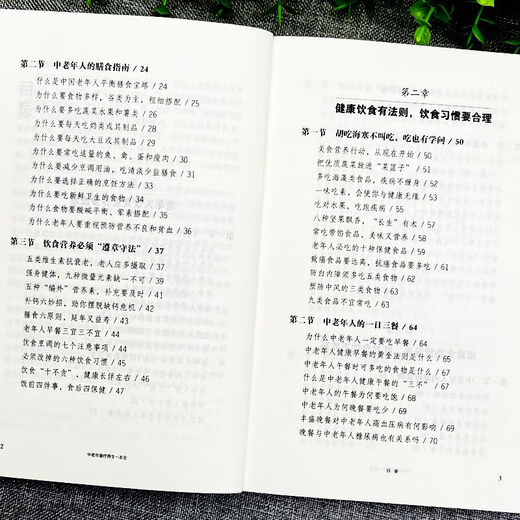 第二节 中老年人的膳食指南 / 24
什么是中国老年人平衡膳食宝塔 / 24
为什么要食物多样，谷类为主，粗细搭配 / 25
为什么要多吃蔬菜水果和薯类 / 26
为什么要每天吃奶类或其制品 / 28
为什么要每天吃大豆或其制品 / 30
为什么要常吃适量的鱼、禽、蛋和瘦肉 / 30
为什么要减少烹调用油，吃清淡少盐膳食 / 31
为什么要选择正确的烹饪方法 / 31
为什么要吃新鲜卫生的食物 / 34
为什么食物要酸碱平衡、荤素搭配 / 34
为什么老年人要重视预防营养不良和贫血 / 36
第三节 饮食营养必须“遵章守法” / 37
五类维生素抗衰老，老人应多摄取 / 37
强身健体，九种微量元素缺一不可 / 39
五种“编外”营养素，补充要及时 / 41
补钙六妙招，助你摆脱缺钙危机 / 42
膳食六原则，延年又益寿 / 43
老年人早餐三宜三不宜 / 44
饮食烹调的七个注意事项 / 44
必须改掉的六种饮食习惯 / 45
饮食“十不贪”，健康长伴左右 / 46
饭前四件事，食后四保健 / 47
2
中老年食疗养生一本全
第二章
健康饮食有法则，饮食习惯要合理
第一节 胡吃海塞不叫吃，吃也有学问 / 50
美食营养行动，从现在开始 / 50
把优质蔬菜放进“菜篮子” / 51
多吃海藻类食品，疾病不缠身 / 52
一味吃素，会使你与健康无缘 / 53
吃对水果，吃跑疾病 / 55
八种坚果飘香，“长生”有术 / 55
常吃带馅食品，美味又营养 / 57
老年人必吃的十种保健食品 / 57
致癌食品要远离，抗癌食品要多吃 / 60
防白内障须多吃五类食物 / 62
预防中风的三类食物 / 63
九类食品不宜常吃 / 63
第二节 中老年人的一日三餐 / 64
为什么中老年人一定要吃早餐 / 64
中老年人健康早餐的黄金法则是什么 / 65
中老年人午餐时可多吃的食物是什么 / 66
什么是中老年人健康午餐的“三不” / 67
中老年人的午餐为何要吃饱 / 68
中老年人为何晚餐要吃少 / 69
丰盛晚餐对中老年人高血压病有何影响 / 69
晚餐与中老年人糖尿病也有关系吗 / 70
目录
3